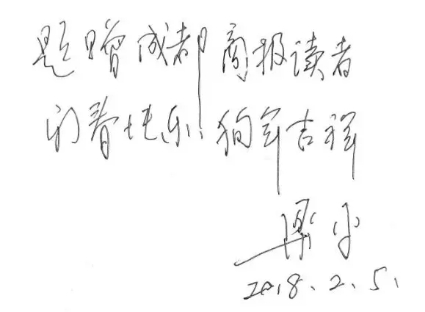 题赠成都商报读者
新春快乐、狗年吉祥
梁平
2018.2.5.